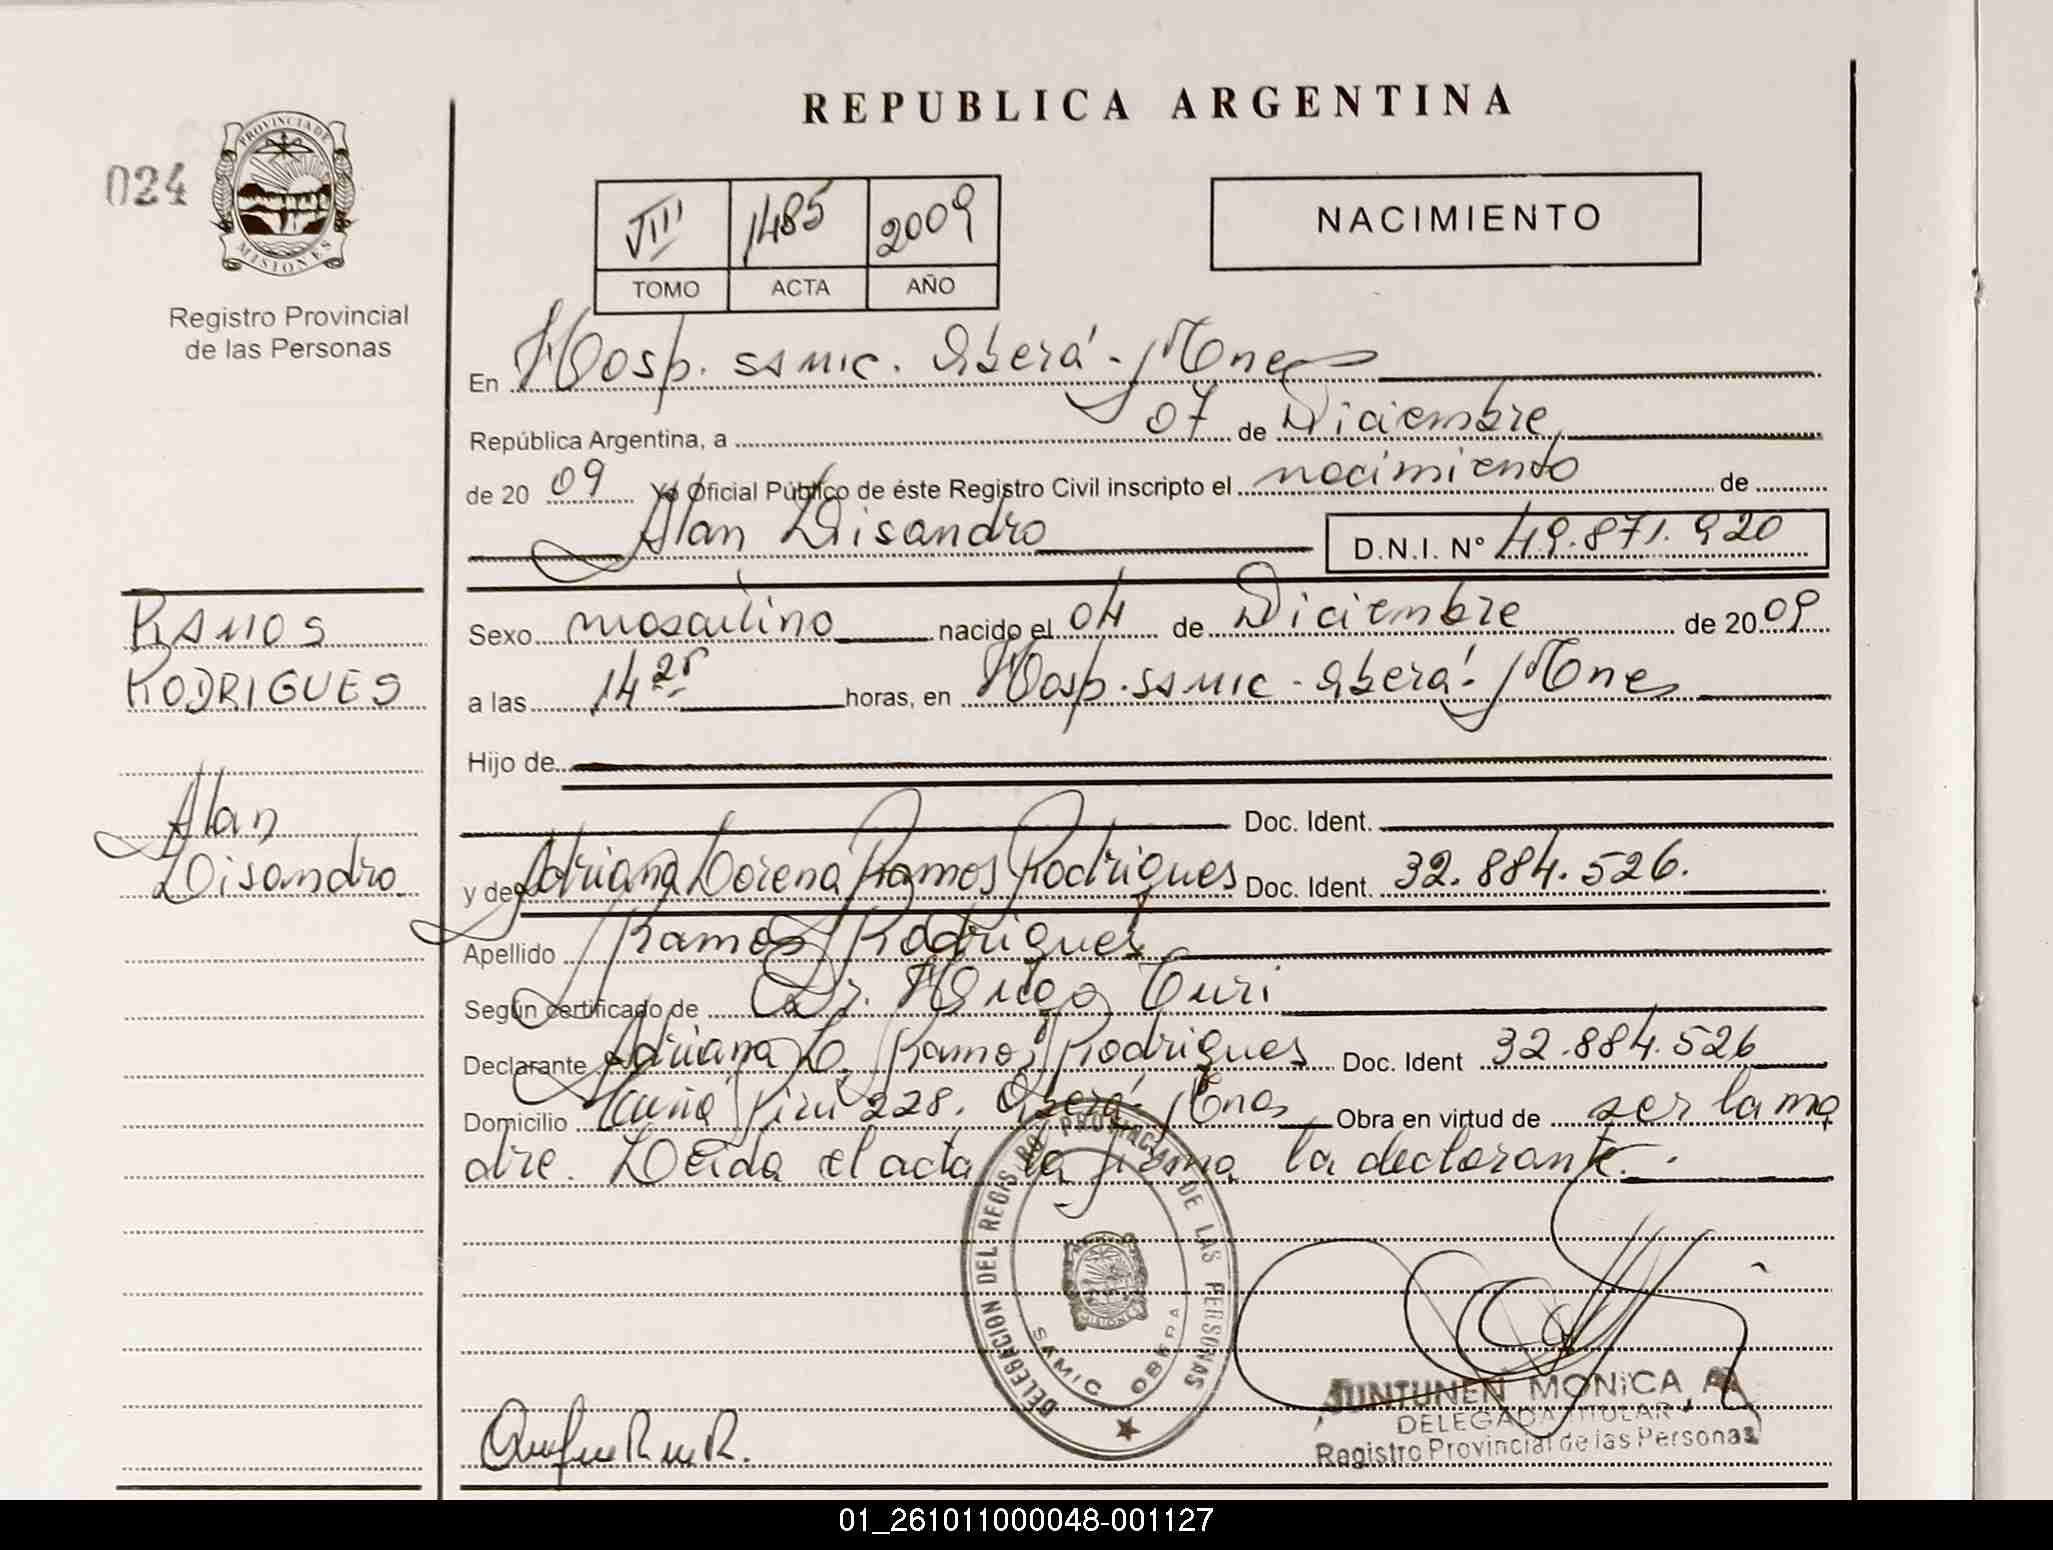 REPUBLICA ARGENTINA
024
PROVINCIA DE
MISIONES
Registro Provincial
de las Personas
VIII 1485 2009
TOMO ACTA AÑO
NACIMIENTO
En Hosp. SAMIC. Oberá - Mnes
República Argentina, a 07 de Diciembre
de 2009 Yo Oficial Público de éste Registro Civil inscripto el nacimiento de
Alan Lisandro D.N.I. Nº 49.871.920
RAMOS
RODRIGUES
Alan
Lisandro
Sexo masculino nacido el 04 de Diciembre de 2009
a las 14 25 horas, en Hosp. SAMIC - Oberá - Mnes
Hijo de
Doc. Ident.
y de Adriana Lorena Ramos Rodrigues Doc. Ident. 32.884.526.
Apellido Ramos Rodrigues
Según certificado de Dr. Hugo
Declarante Adriana L. Ramos Rodrigues Doc. Ident 32.884.526
Domicilio Cuña Pirú 228. Oberá - Mnes Obra en virtud de ser la ma
dre. Leída el acta la firma la declarante.
DELEGACION DEL REGISTRO PROVINCIAL DE LAS PERSONAS
SAMIC OBERA
MISIONES
JUNTUNEN MONICA A.
DELEGADA TITULAR
Registro Provincial de las Personas
01_261011000048-001127